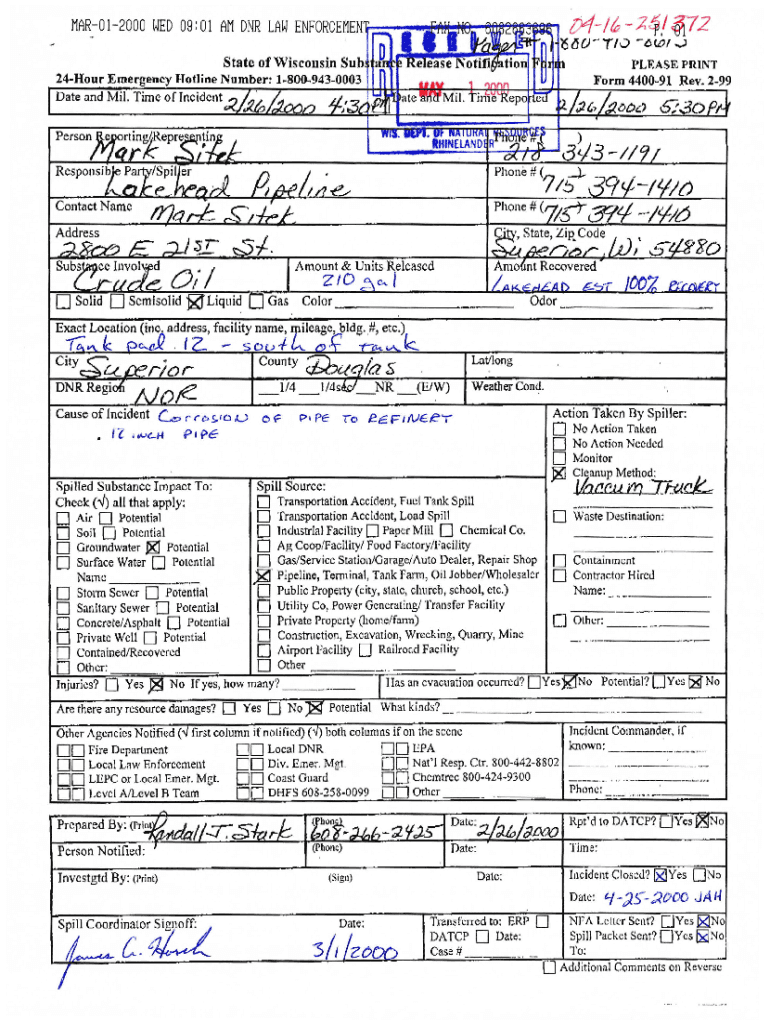 MAR-01-2000 WED 09:01 AM DNR LAW ENFORCEMENT FAX NO. P. 01
04-16-251372
RECEIVED
Pager #
State of Wisconsin Substance Release Notification Form PLEASE PRINT
24-Hour Emergency Hotline Number: 1-800-943-0003 Form 4400-91 Rev. 2-99
MAY 1 2000
Date and Mil. Time of Incident 2/26/2000 4:30PM Date and Mil. Time Reported 2/26/2000 5:30PM
WIS. DEPT. OF NATURAL RESOURCES
RHINELANDER
Person Reporting/Representing Phone # ( )
Mark Sitek 218 343-1191
Responsible Party/Spiller Phone # ( )
Lakehead Pipeline 715 394-1410
Contact Name Mark Sitek Phone # ( ) 715 394-1410
Address City, State, Zip Code
2800 E 21ST St. Superior, Wi 54880
Substance Involved Amount & Units Released Amount Recovered
Crude Oil 210 gal LAKEHEAD EST 100% RECOVERY
Solid Semisolid Liquid Gas Color Odor
Exact Location (inc. address, facility name, mileage, bldg. #, etc.)
Tank pad 12 - south of tank
City Superior County Douglas Lat/long
DNR Region NOR 1/4 1/4sec NR (E/W) Weather Cond.
Cause of Incident CORROSION OF PIPE TO REFINERY
12 INCH PIPE
Action Taken By Spiller:
No Action Taken
No Action Needed
Monitor
Cleanup Method:
Vaccum Truck
Waste Destination:
Containment
Contractor Hired
Name:
Other:
Spilled Substance Impact To:
Check (√) all that apply:
Air Potential
Soil Potential
Groundwater Potential
Surface Water Potential
Name
Storm Sewer Potential
Sanitary Sewer Potential
Concrete/Asphalt Potential
Private Well Potential
Contained/Recovered
Other:
Spill Source:
Transportation Accident, Fuel Tank Spill
Transportation Accident, Load Spill
Industrial Facility Paper Mill Chemical Co.
Ag Coop/Facility/ Food Factory/Facility
Gas/Service Station/Garage/Auto Dealer, Repair Shop
Pipeline, Terminal, Tank Farm, Oil Jobber/Wholesaler
Public Property (city, state, church, school, etc.)
Utility Co, Power Generating/ Transfer Facility
Private Property (home/farm)
Construction, Excavation, Wrecking, Quarry, Mine
Airport Facility Railroad Facility
Other
Injuries? Yes No If yes, how many? Has an evacuation occurred? Yes No Potential? Yes No
Are there any resource damages? Yes No Potential What kinds?
Other Agencies Notified (√ first column if notified) (√) both columns if on the scene
Fire Department Local DNR EPA
Local Law Enforcement Div. Emer. Mgt. Nat'l Resp. Ctr. 800-442-8802
LEPC or Local Emer. Mgt. Coast Guard Chemtrec 800-424-9300
Level A/Level B Team DHFS 608-258-0099 Other
Incident Commander, if
known:
Phone:
Prepared By: (Print) Randall J. Stark (Phone) 608-266-2425 Date: 2/26/2000 Rpt'd to DATCP? Yes No
Person Notified: (Phone) Date: Time:
Investgtd By: (Print) (Sign) Date: Incident Closed? Yes No
Date: 4-25-2000 JAH
Spill Coordinator Signoff: Date: Transferred to: ERP NFA Letter Sent? Yes No
DATCP Date: Spill Packet Sent? Yes No
James A. Hosch 3/1/2000 Case # To:
Additional Comments on Reverse